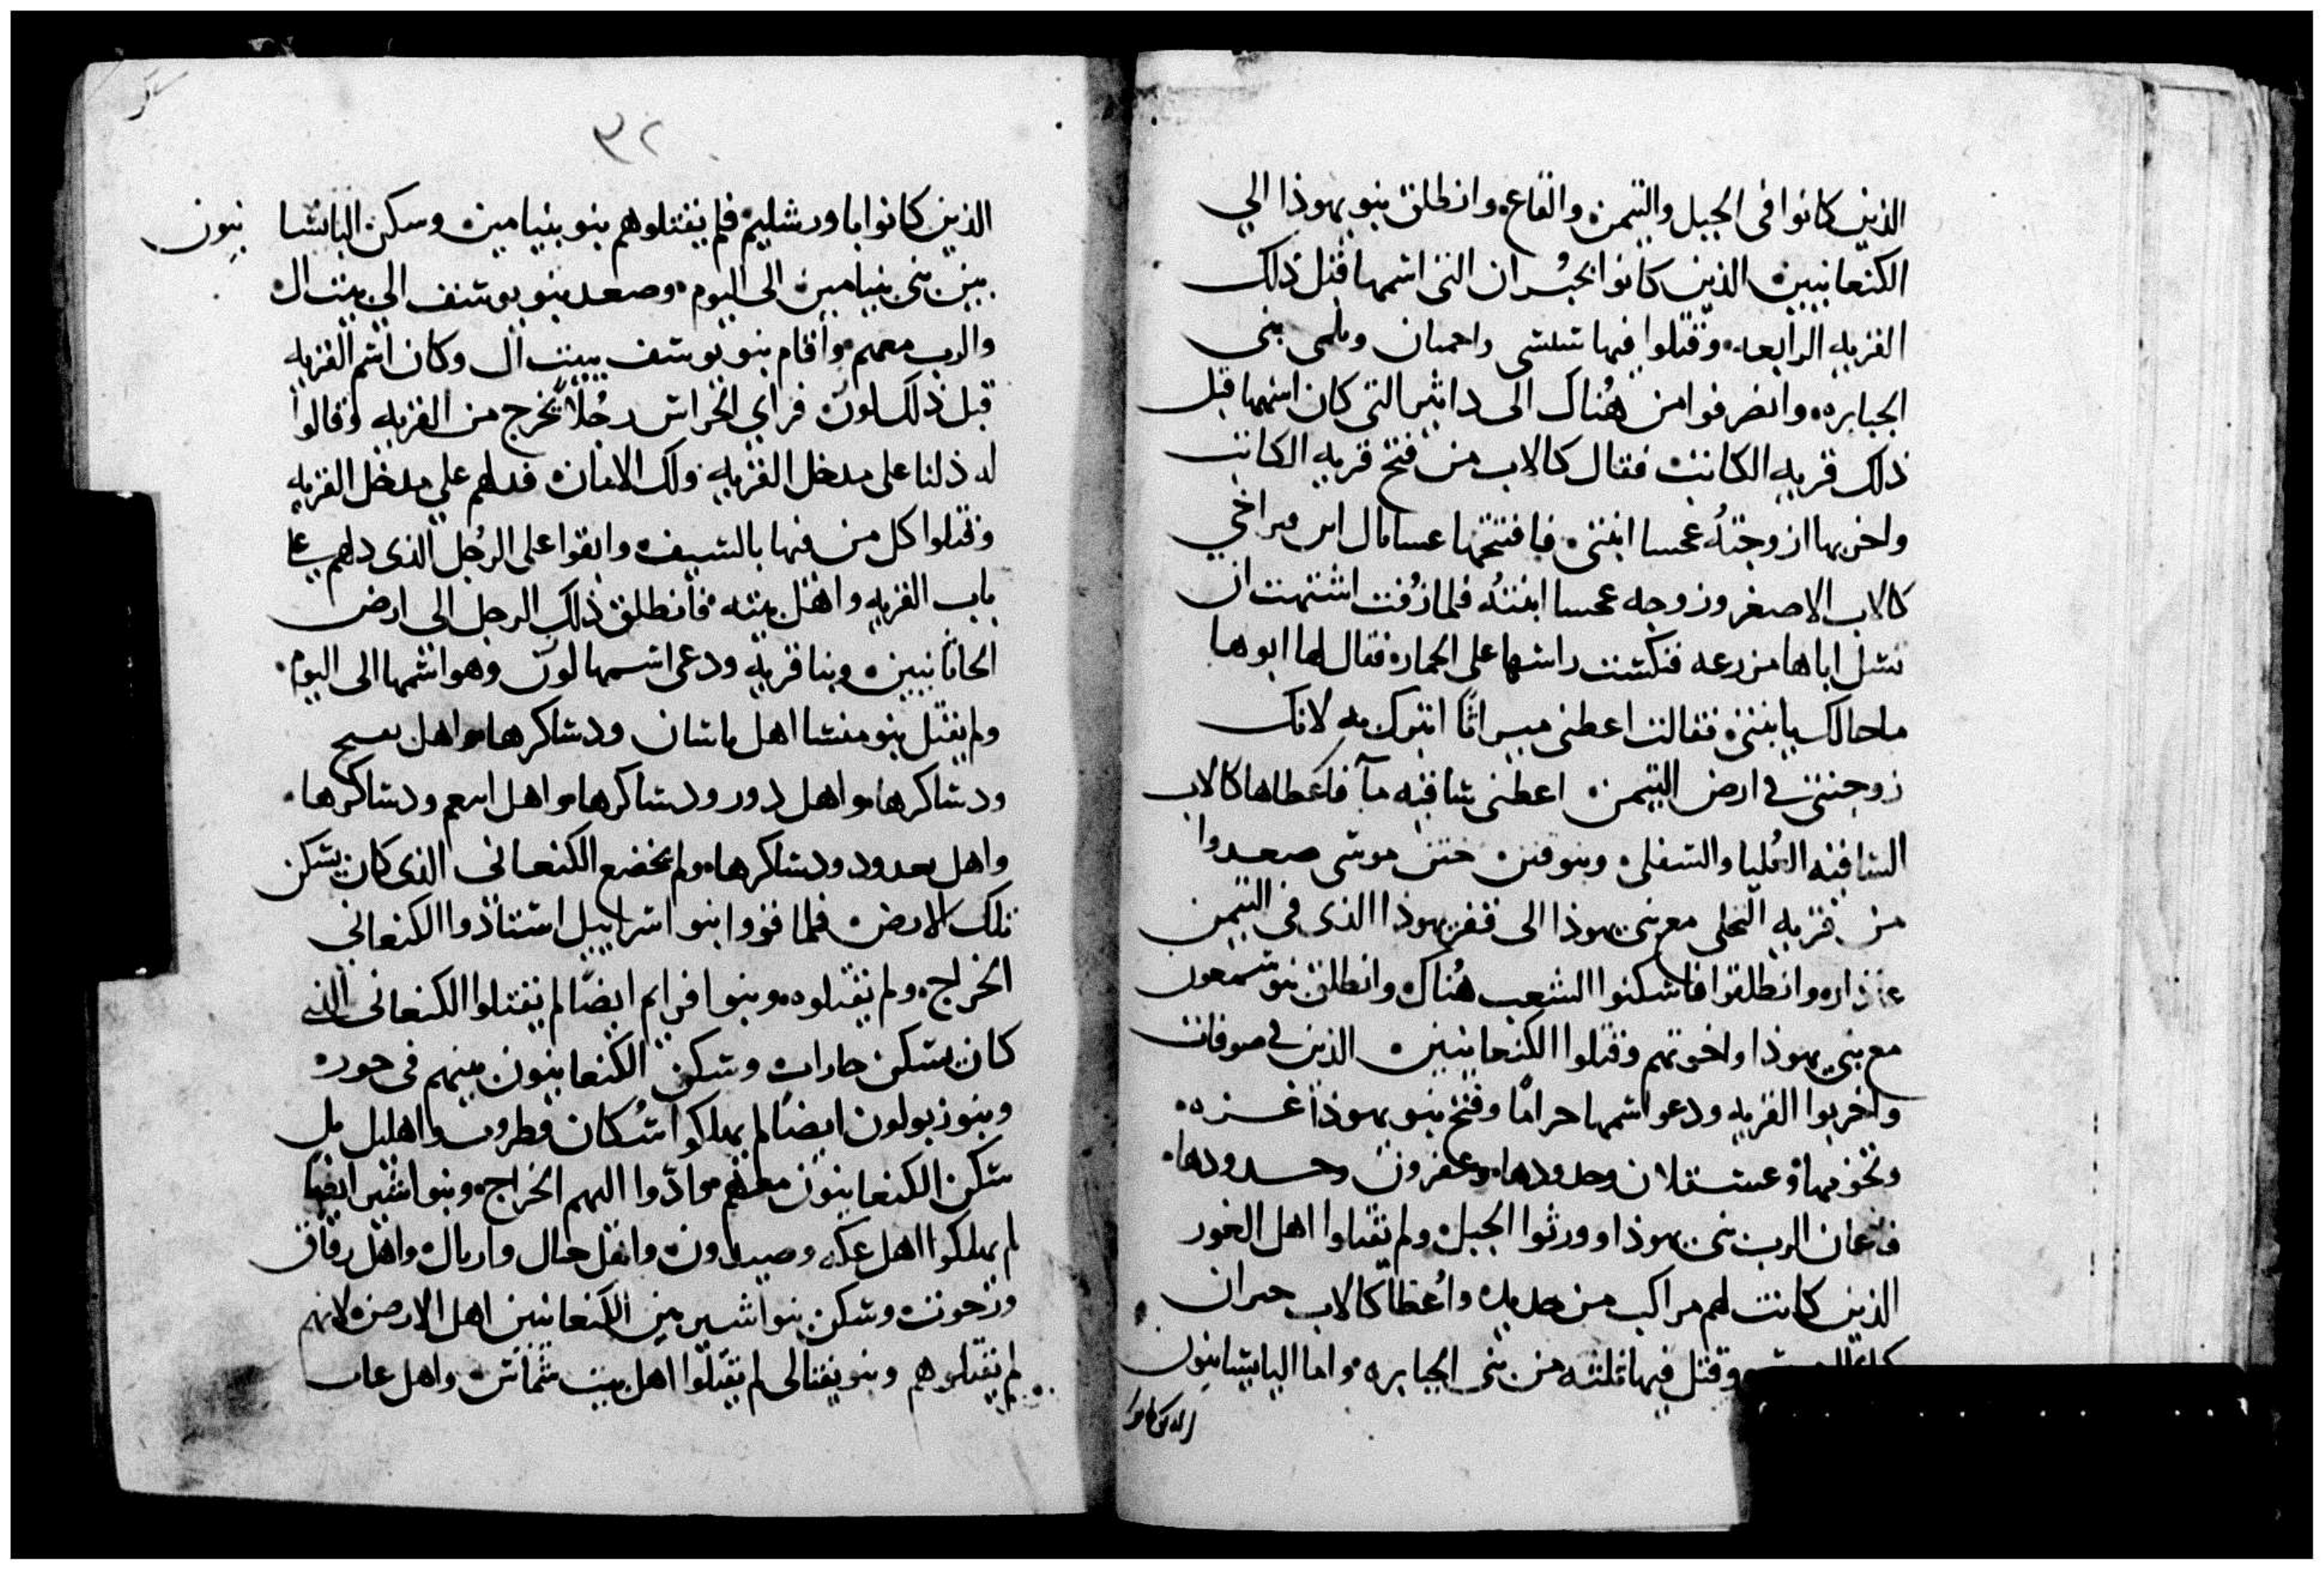 الذين كانوا فى الجبل والتيمن والقاع وانطلق بنو يهوذا الي
الكنعانيين الذين كانوا بحبران التى اسمها قبل ذلك
القريه الرابعه وقتلوا فيها واحمان وتلمى بنى
الجبابره وانصرفوا من هُناك الى دابير التى كان اسمها قبل
ذلك قريه الكاتب فقال كالاب من فتح قريه الكاتب
واخربها ازوجتهُ عحسا ابنتى فافتتحها اخى
كالاب الاصغر وزوجه عحسا ابنتهُ فلما زُفت اشتهت ان
تسل اباها مزرعه فنكست راسها على الحماره فقال لها ابوها
ما حالك يا ابنتى فقالت اعطنى ميراثًا اتبرك به لانك
زوجتنى فى ارض التيمن اعطنى ساقيه مآ فاعطاها كالاب
الساقيه العُليا والسفلى وبنو قين ختن موسى صعدوا
من قريه النخل مع بنى يهوذا الى قفر يهوذا الذى فى التيمن
وانطلقوا فاسكنوا الشعب هُناك وانطلق بنو شمعون
مع بنى يهوذا واخوتهم وقتلوا الكنعانيين الذين فى صوفات
واخربوا القريه ودعو اسمها حرامًا وفتح بنو يهوذا غزه
وتخومها وعسقلان وحدودها وعقرون وحدودها
فاعان الرب بنى يهوذا وورثوا الجبل ولم يقتلوا اهل الغور
الذين كانت لهم مراكب من حديد واُعطا كالاب حبران
وقتل فيها ثلثه من بنى الجبابره واما اليابسانيون
الذين كانوا
٣٢
الذين كانوا باورشليم فلم يقتلوهم بنو بنيامين وسكن اليابسا نيون
بين بنى بنيامين الى اليوم وصعد بنو يوسف الى بيت ال
والرب معهم واقام بنو يوسف ببيت ال وكان اسم القريه
قبل ذلك لون فراى الحراس رجُلاً يخرج من القريه وقالوا
له دلنا على مدخل القريه ولك الامان فدلهم على مدخل القريه
وقتلوا كل من فيها بالسيف وابقوا على الرجُل الذى دلهم على
باب القريه واهل بيته فانطلق ذلك الرجل الى ارض
الحاثانيين وبنا قريه ودعى اسمها لون وهو اسمها الى اليوم
ولم يقتل بنو منشا اهل باسان ودساكرها واهل
ودساكرها واهل دور ودساكرها واهل ودساكرها
واهل ودساكرها ولم يخضع الكنعانى الذى كان يسكن
تلك الارض فلما قووا بنو اسراييل استادوا الكنعانى
الخراج ولم يقتلوه وبنوا افرايم ايضًا لم يقتلوا الكنعانى الذى
كان يسكن وسكن الكنعانيون بينهم فى
وبنو زبولون ايضًا لم يملكوا سُكان قطرون واهليل بل
سكن الكنعانيون معهم وادّوا اليهم الخراج وبنو اشير ايضًا
لم يملكوا اهل عكه وصيدون واهل واهل
وسكن بنو اشير بين الكنعانيين اهل الارض لانهم
لم يقتلوهم وبنو نفتالى لم يقتلوا اهل بيت شماس واهل